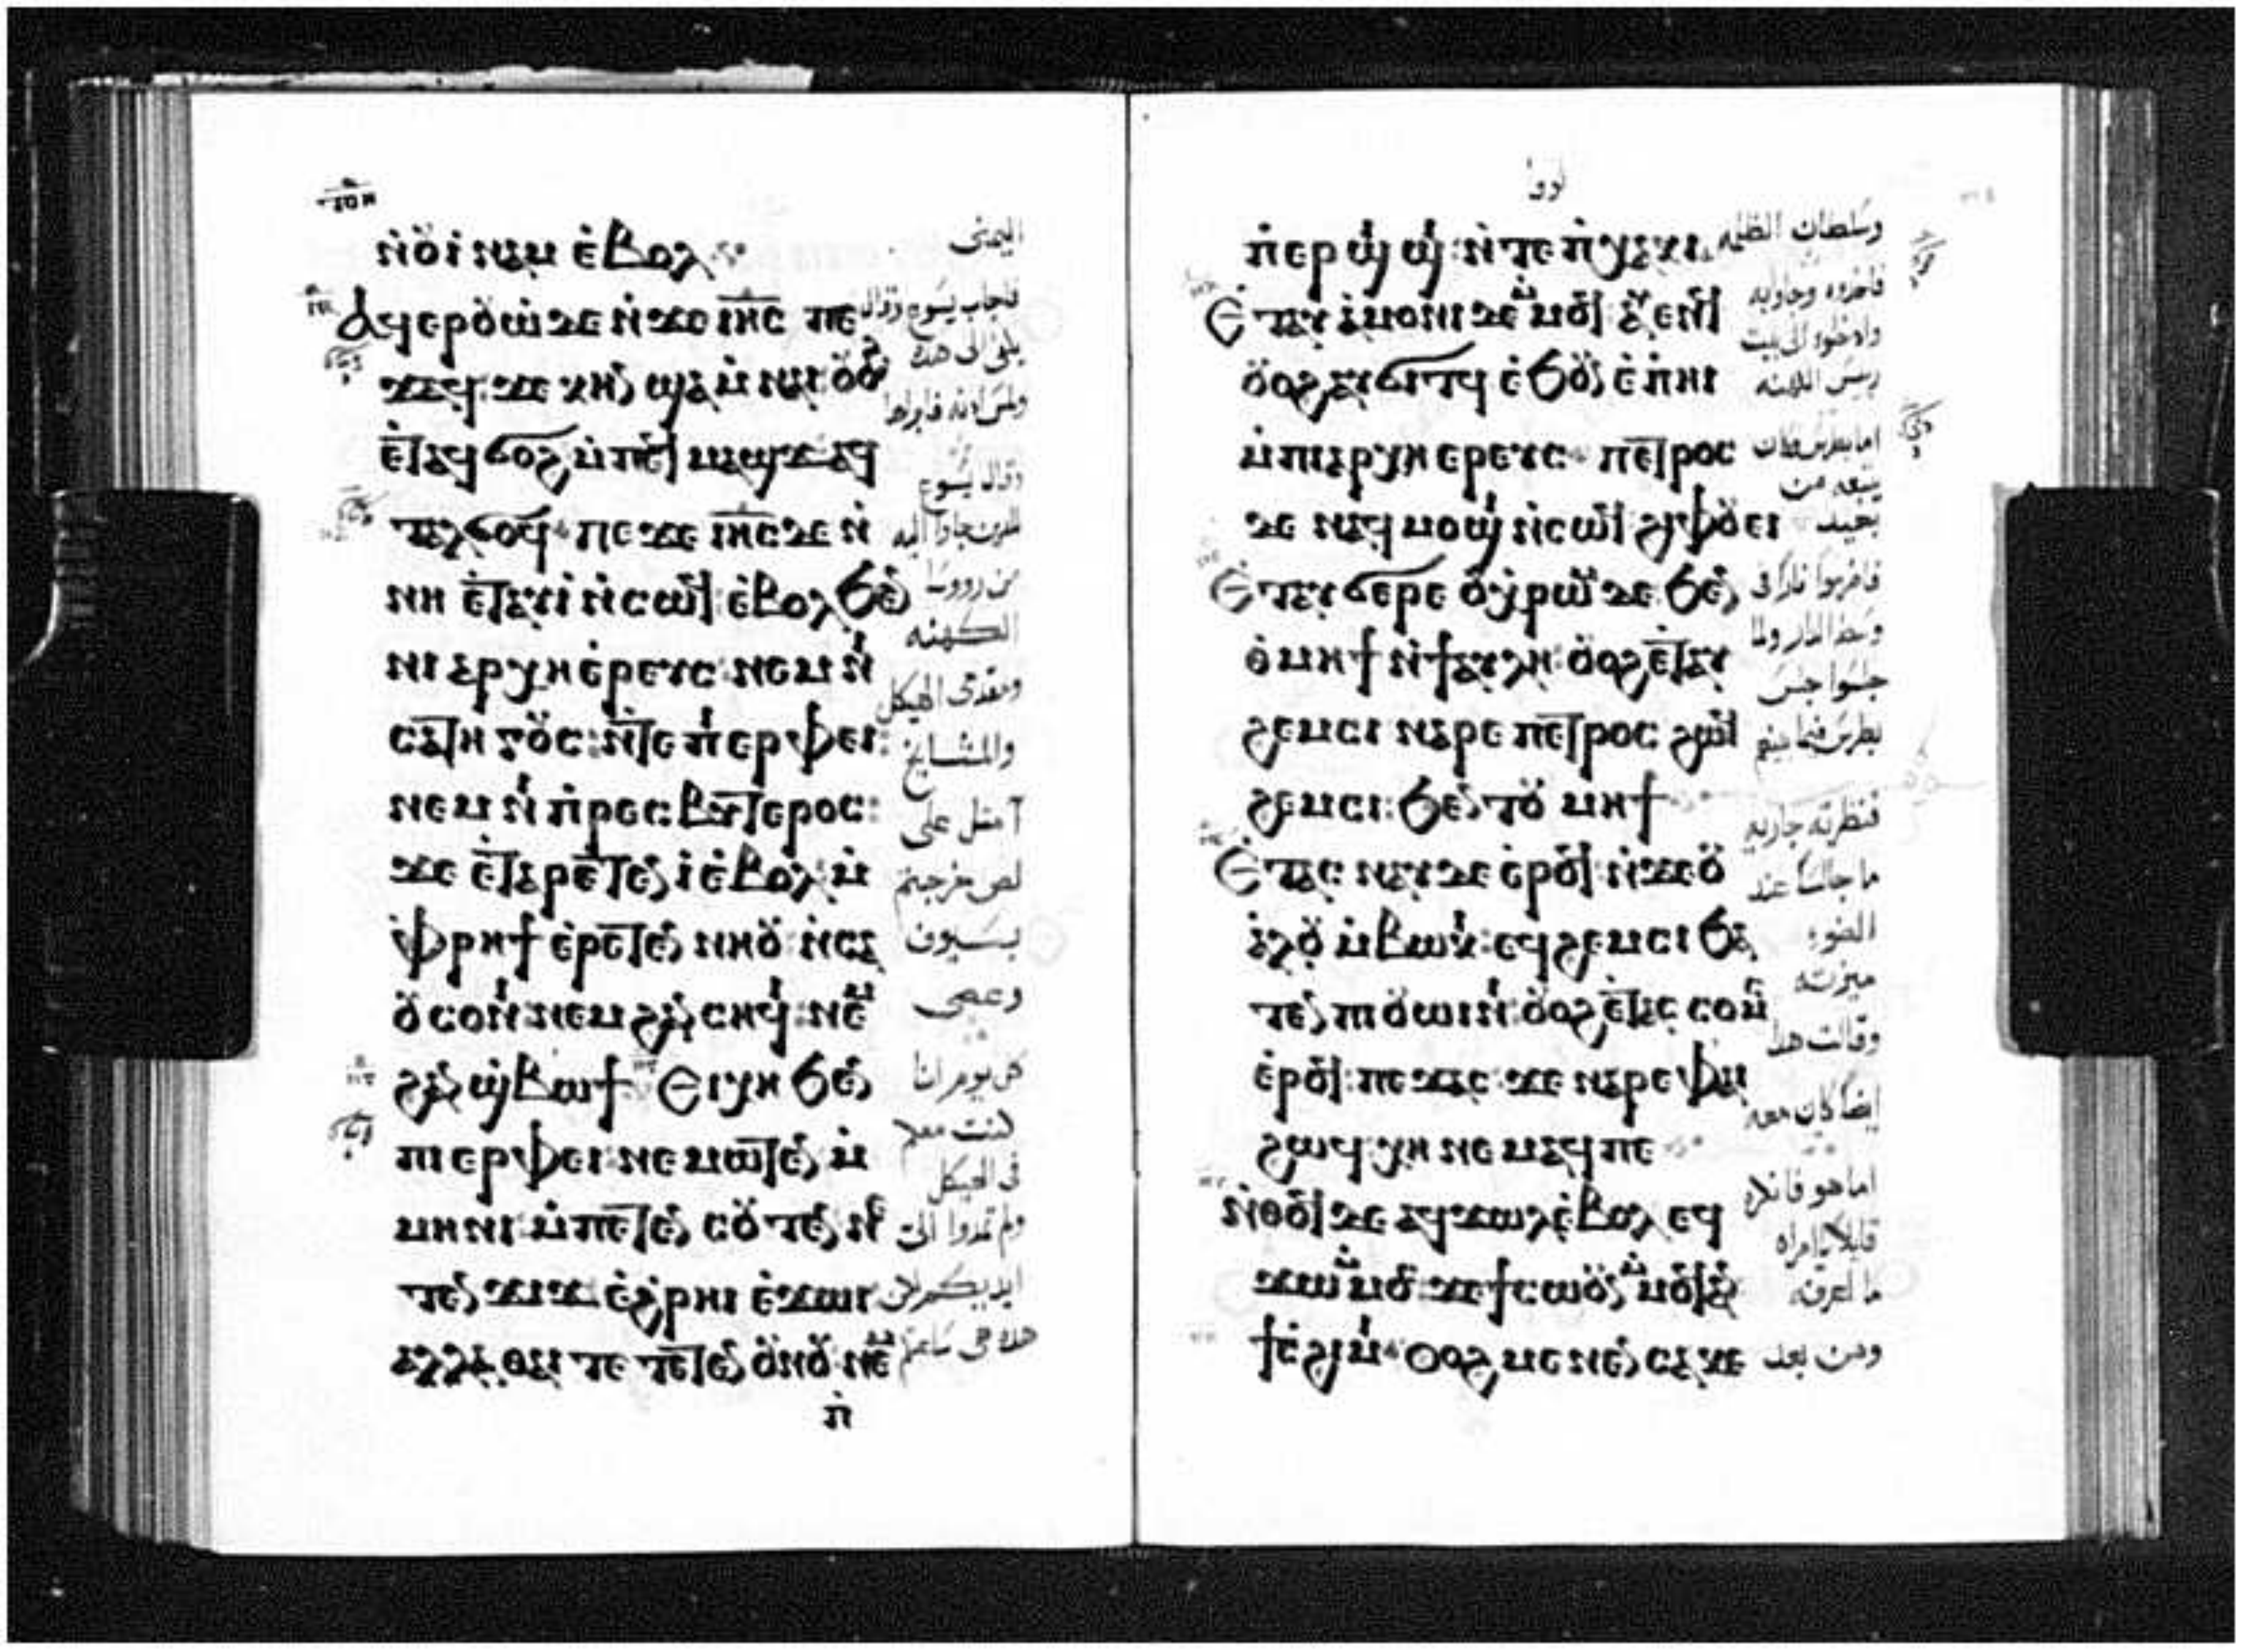 ⲛ̀ⲟⲩⲓ̀ⲛⲁⲙ ⲉ̀ⲃⲟⲗ
ⲁϥⲉⲣⲟⲩⲱ̀ ⲇⲉ ⲛ̀ϫⲉ ⲓⲏ̅ⲥ̅ ⲡⲉ
ϫⲁϥ: ϫⲉ ⲭⲏⲛ ϣⲁ ⲙ̀ⲛⲁⲓ ⲟⲩⲟϩ
ⲉ̀ⲧⲁϥϭⲟϩ ⲙ̀ⲡⲉϥⲙⲁϣϫ ⲁϥ
ⲧⲁⲗϭⲟϥ ⲡⲉϫⲉ ⲓⲏ̅ⲥ̅ ⲇⲉ ⲛ̀
ⲛⲏ ⲉ̀ⲧⲁⲩⲓ̀ ⲛ̀ⲥⲱϥ: ⲉ̀ⲃⲟⲗϧⲉⲛ
ⲛⲓⲁⲣⲭⲏⲉ̀ⲣⲉⲩⲥ: ⲛⲉⲙ ⲛⲓ
ⲥⲁⲧⲏⲅⲟⲩⲥ: ⲛ̀ⲧⲉ ⲡⲓⲉⲣⲫⲉⲓ:
ⲛⲉⲙ ⲛⲓⲡ̀ⲣⲉⲥⲃⲩⲧⲉⲣⲟⲥ:
ϫⲉ ⲉ̀ⲧⲁⲣⲉⲧⲉⲛⲓ̀ ⲉ̀ⲃⲟⲗ ⲙ̀
ⲫ̀ⲣⲏϯ ⲉ̀ⲣⲉⲧⲉⲛ ⲛⲏⲟⲩ ⲛ̀ⲥⲁ
ⲟⲩⲥⲟⲛⲓ: ⲛⲉⲙ ϩⲁⲛ ⲥⲏϥⲓ: ⲛⲉⲙ
ϩⲁⲛ ϣ̀ⲃⲱϯ Ⲉⲓⲭⲏ ϧⲉⲛ
ⲡⲓⲉⲣⲫⲉⲓ: ⲛⲉⲙⲱⲧⲉⲛ ⲙ̀
ⲙⲏⲛⲓ: ⲙ̀ⲡⲉⲧⲉⲛ ⲥⲟⲩⲧⲉⲛ ⲛⲉ
ⲧⲉⲛϫⲓϫ ⲉ̀ϩⲣⲏⲓ ⲉ̀ϫⲱⲓ
ⲁⲗⲗⲁ ⲑⲁⲓ ⲧⲉ ⲧⲉⲧⲉⲛ ⲟⲩⲛⲟⲩ: ⲛⲉⲙ
ⲡⲓ
اليمنى
فاجاب يسوع وقال
وقال يسوع
للذين جاوا اليه
من رووسا
الكهنه
ومقدمى الهيكل
والمشايخ
امثل على
لص خرجتم
بسيوف
وعصى
كل يوم انا
كنت معكم
فى الهيكل
ولم تمدوا الى
ايديكم لان
هذه هى ساعتكم
ⲡⲓⲉⲣϣⲓϣⲓ: ⲛ̀ⲧⲉ ⲡⲓⲭⲁⲕⲓ
Ⲉ̀ⲧⲁⲩⲁ̀ⲙⲟⲛⲓ ⲇⲉ ⲙ̀ⲙⲟϥ ⲁⲩⲉⲛϥ
ⲟⲩⲟϩ ⲁⲩϭⲓⲧϥ ⲉ̀ϧⲟⲩⲛ ⲉ̀ⲡⲏⲓ
ⲙ̀ⲡⲓⲁⲣⲭⲏⲉⲣⲉⲩⲥ ⲡⲉⲧⲣⲟⲥ
ⲇⲉ ⲛⲁϥⲙⲟϣⲓ ⲛ̀ⲥⲱϥ ϩⲓⲫⲟⲩⲉⲓ
Ⲉ̀ⲧⲁⲩϭⲉⲣⲉ ⲟⲩⲭ̀ⲣⲱⲙ ⲇⲉ ϧⲉⲛ
ⲑ̀ⲙⲏϯ ⲛ̀ϯⲁⲩⲗⲏ: ⲟⲩⲟϩ ⲉ̀ⲧⲁⲩ
ϩⲉⲙⲥⲓ ⲛⲁⲣⲉ ⲡⲉⲧⲣⲟⲥ ϩⲱϥ
ϩⲉⲙⲥⲓ: ϧⲉⲛ ⲧⲟⲩⲙⲏϯ
Ⲉ̀ⲧⲁⲥⲛⲁⲩ ⲇⲉ ⲉ̀ⲣⲟϥ: ⲛ̀ϫⲉ ⲟⲩ
ⲁ̀ⲗⲟⲩ ⲙ̀ⲃⲱⲕⲓ: ⲉϥϩⲉⲙⲥⲓ ϧⲁ
ⲧⲉⲛ ⲡⲓⲟⲩⲱⲓⲛⲓ: ⲟⲩⲟϩ ⲉ̀ⲧⲁⲥⲥⲟⲙⲥ
ⲉ̀ⲣⲟϥ: ⲡⲉϫⲁⲥ ϫⲉ ⲛⲁⲣⲉ ⲫⲁⲓ
ϩⲱϥ ⲭⲏ ⲛⲉⲙⲁϥ ⲡⲉ
Ⲛ̀ⲑⲟϥ ⲇⲉ ⲁϥϫⲱⲗ ⲉ̀ⲃⲟⲗ ⲉϥ
ϫⲱ ⲙ̀ⲙⲟⲥ ϫⲉ ϯⲥⲱⲟⲩⲛ ⲙ̀ⲙⲟϥ ⲁⲛ
ϯⲥ̀ϩⲓⲙⲓ Ⲟⲩⲟϩ ⲙⲉⲛⲉⲛⲥⲁ ⲕⲉ
وسلطان الظلمه
فاخذوه وجاوا به
وادخلوه الى بيت
رييس الكهنه
اما بطرس فكان
يتبعه من
بعيد
وسط الدار ولما
جلسوا جلس
بطرس فيما بينهم
فنظرته جاريه
جالسا عند
الضوء
ميزته
وقالت هذا
ايضا كان معه
اما هو فانكر
قايلا يا امراه
ما اعرفه
ومن بعد